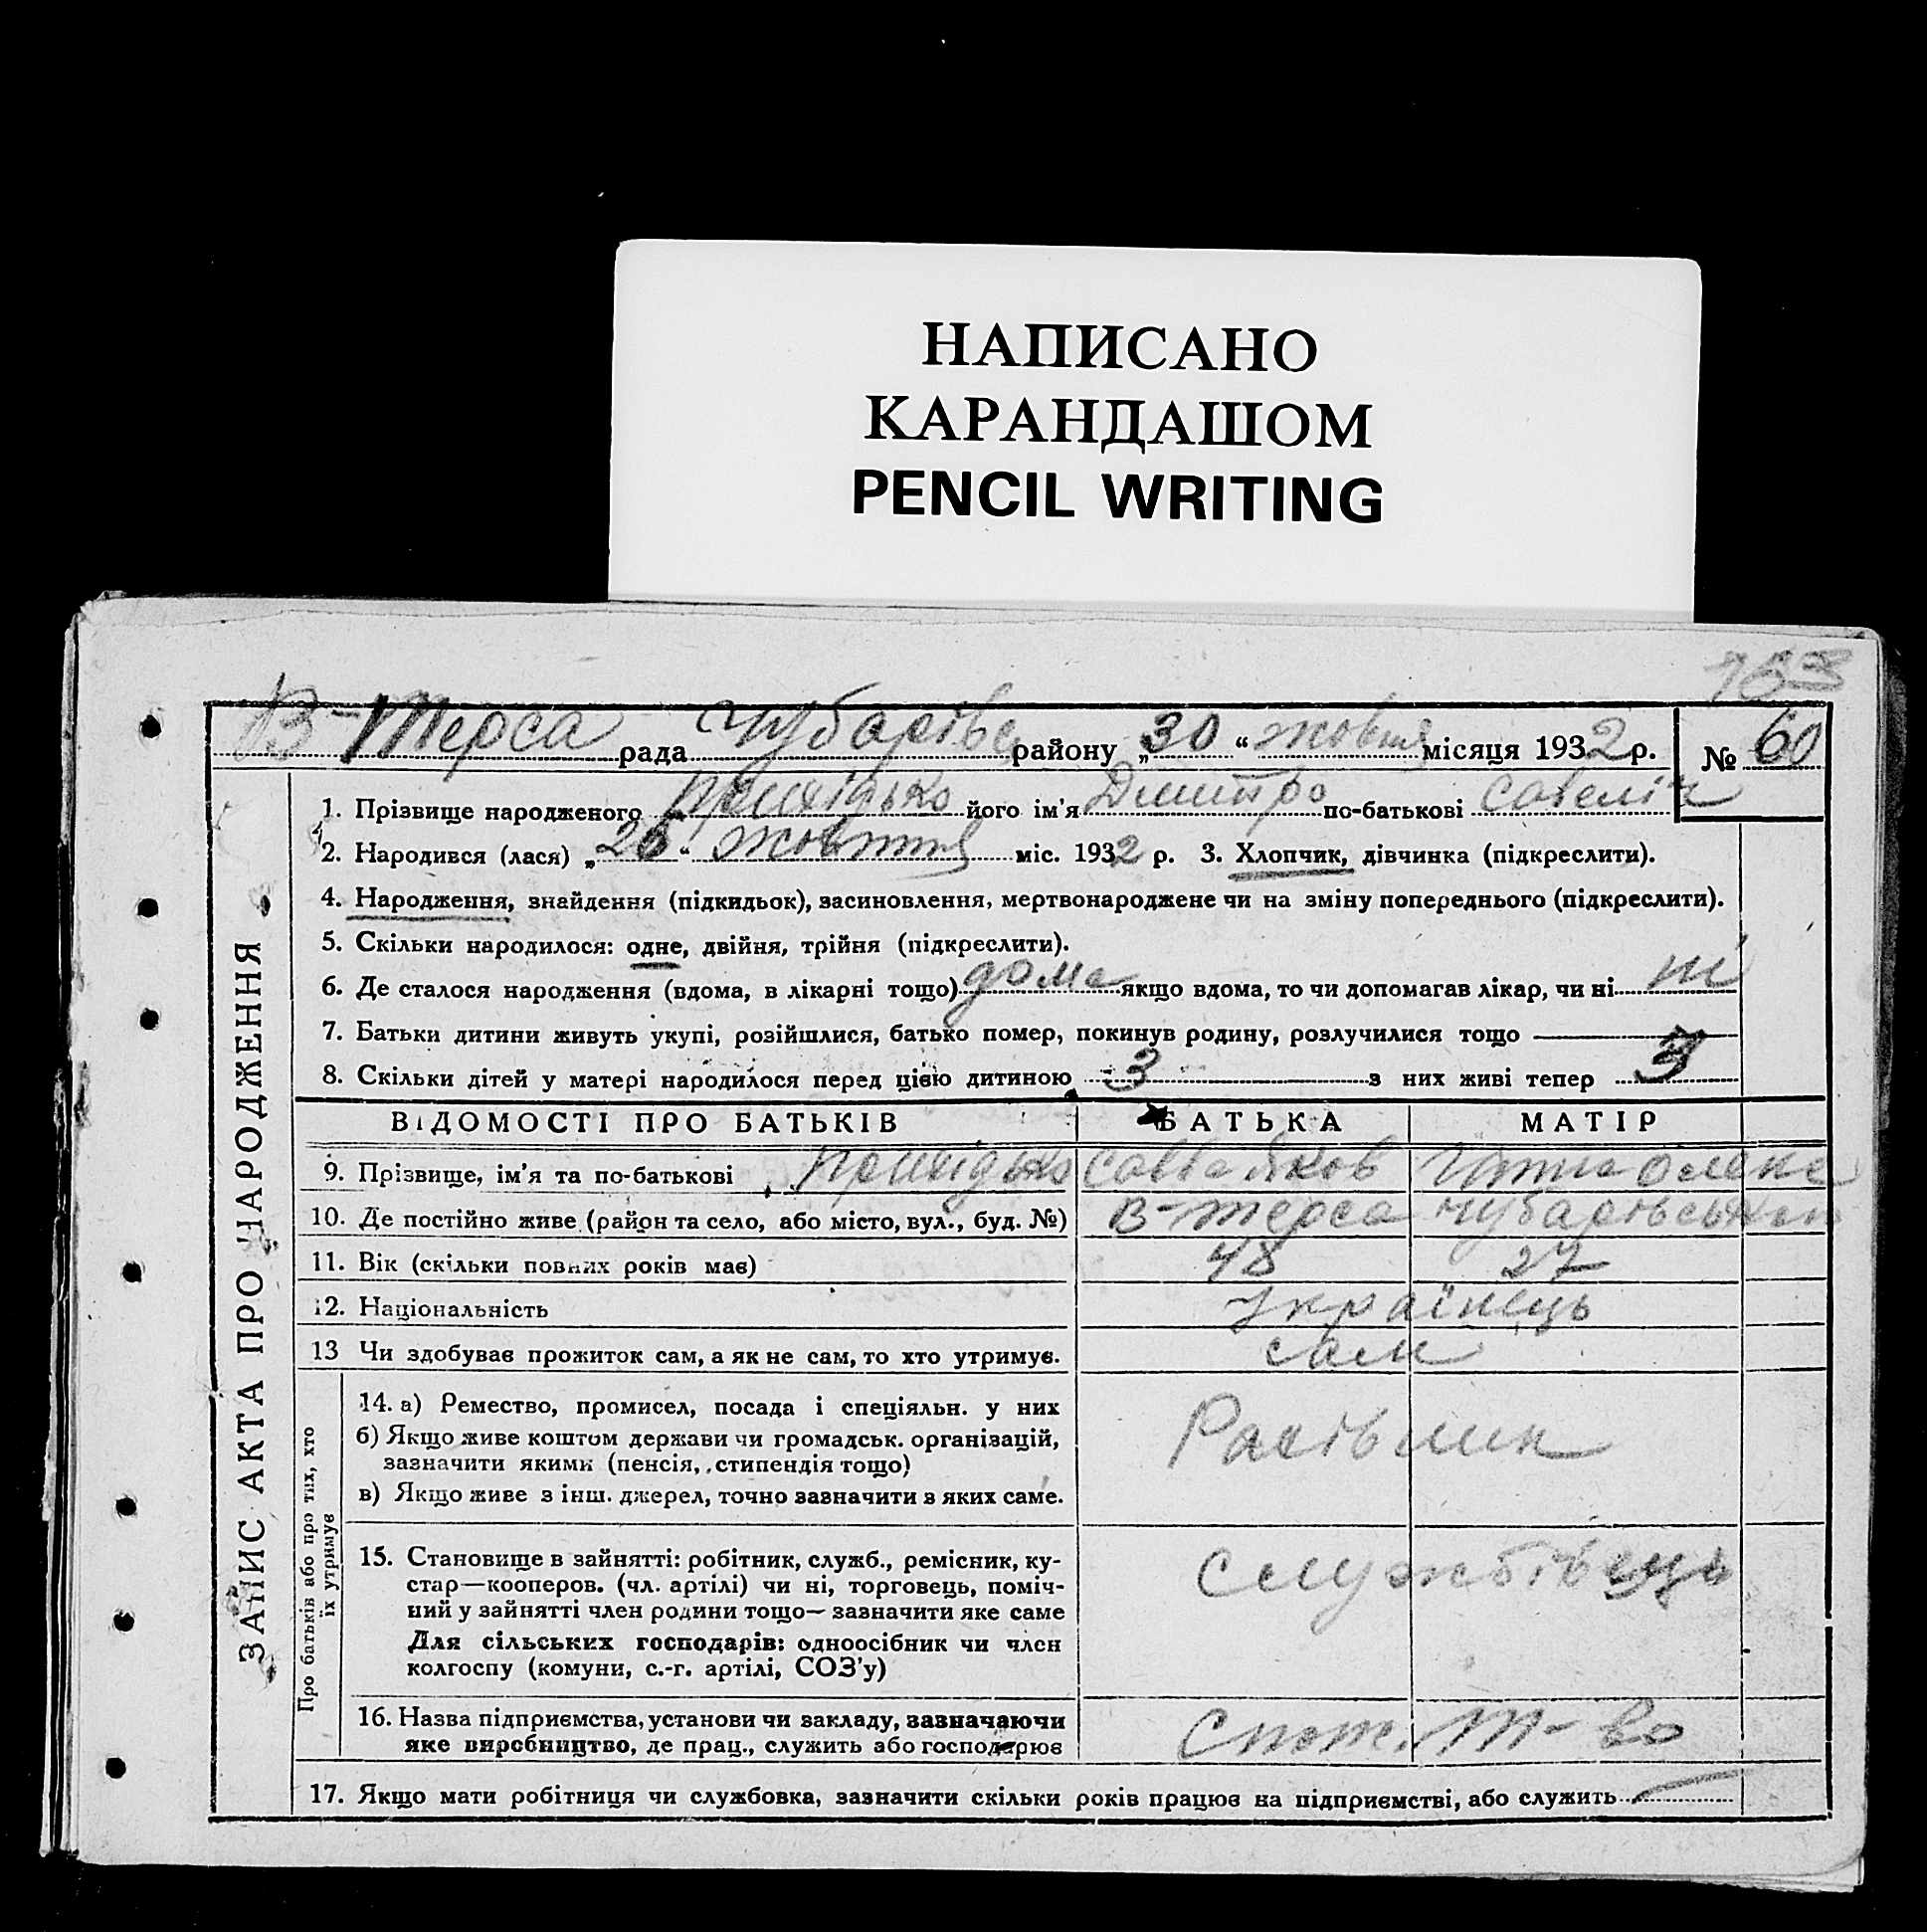 НАПИСАНО
КАРАНДАШОМ
PENCIL WRITING
763
В-Терса рада Чубарівс району „30“ жовтня місяця 1932 р. № 60
1. Прізвище народженого Прихідько його ім'я Дмитро по-батькові Савеліч
2. Народився (лася) „26“ жовтня міс. 1932 р. 3. Хлопчик, дівчинка (підкреслити).
4. Народження, знайдення (підкидьок), засиновлення, мертвонароджене чи на зміну попереднього (підкреслити).
5. Скільки народилося: одне, двійня, трійня (підкреслити).
6. Де сталося народження (вдома, в лікарні тощо) дома якщо вдома, то чи допомагав лікар, чи ні
7. Батьки дитини живуть укупі, розійшлися, батько помер, покинув родину, розлучилися тощо —
8. Скільки дітей у матері народилося перед цією дитиною 3 з них живі тепер 3
ВІДОМОСТІ ПРО БАТЬКІВ БАТЬКА МАТІР
9. Прізвище, ім'я та по-батькові Прихідько Савва Яков
10. Де постійно живе (район та село, або місто, вул., буд. №) В-Терса Чубарівський
11. Вік (скільки повних років має) 48 27
12. Національність Українець
13 Чи здобуває прожиток сам, а як не сам, то хто утримує. сам
14. а) Ремество, промисел, посада і спеціяльн. у них
б) Якщо живе коштом держави чи громадськ. організацій,
зазначити якими (пенсія, стипендія тощо)
в) Якщо живе з інш. джерел, точно зазначити з яких саме.
15. Становище в зайнятті: робітник, служб., ремісник, ку-
стар—кооперов. (чл. артілі) чи ні, торговець, поміч-
ний у зайнятті член родини тощо— зазначити яке саме
Для сільських господарів: одноосібник чи член
колгоспу (комуни, с.-г. артілі, СОЗ'у)
службівець
16. Назва підприємства, установи чи закладу, зазначаючи
яке виробництво, де прац., служить або господарює
Спож. т-во
17. Якщо мати робітниця чи службовка, зазначити скільки років працює на підприємстві, або служить —
ЗАПИС АКТА ПРО НАРОДЖЕННЯ
Про батьків або про тих, хто
їх утримує